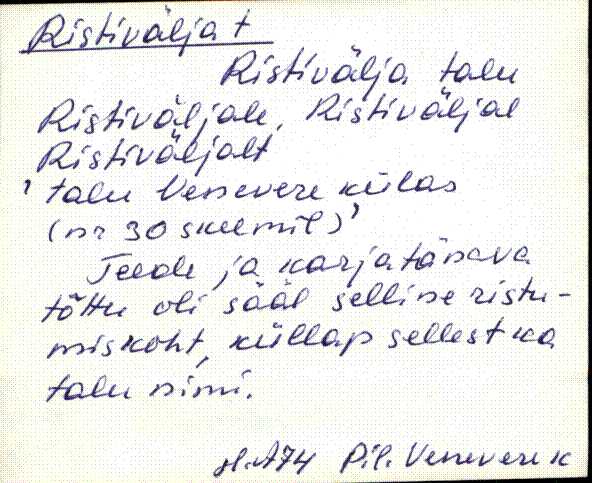 Ristivälja t
Ristivälja talu
Ristiväljale, Ristiväljal
Ristiväljalt
' talu Venevere külas
(nr 30 skeemil)'
Teede ja karjatänava
tõttu oli sääl selline ristu-
miskoht, küllap sellest ka
talu nimi.
Pil. Venevere k